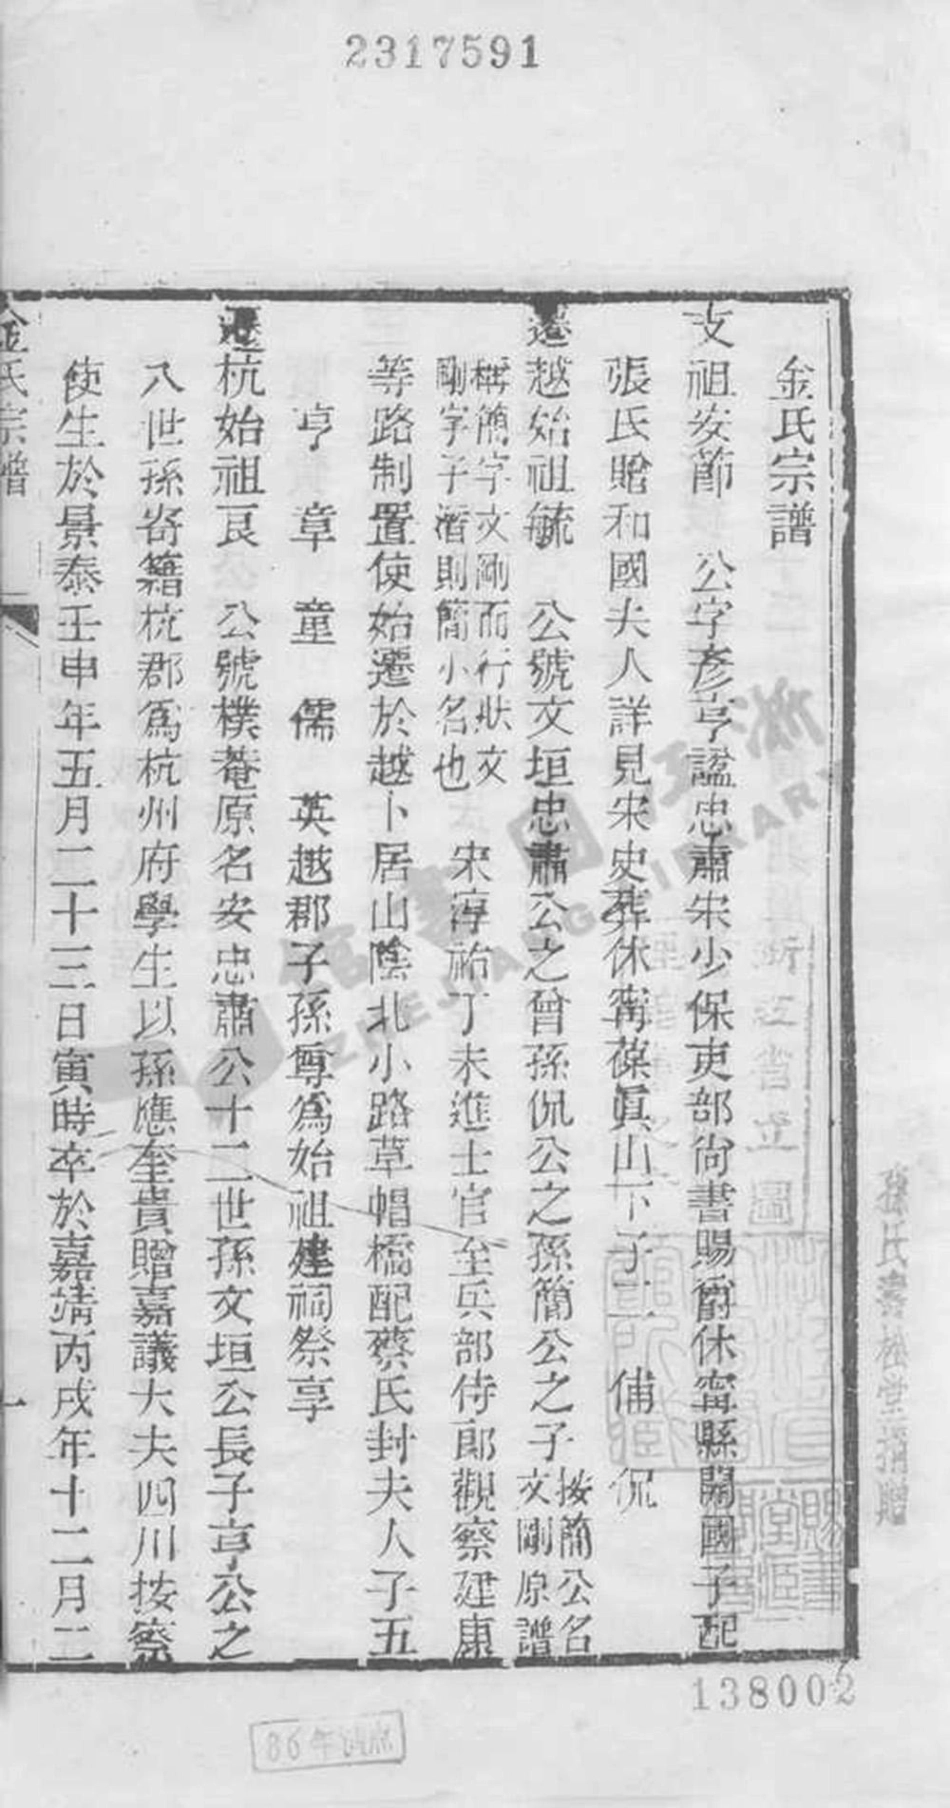 2317591
金氏宗譜
支祖安節　公字彥亨諡忠肅宋少保吏部尙書賜爵休甯縣開國子配
張氏贈和國夫人詳見宋史葬休甯葆眞山下子二　俌　侃
遷越始祖毓　公號文垣忠肅公之曾孫侃公之孫簡公之子按簡公名
文剛原譜
稱簡字文剛而行狀文
剛字子潛則簡小名也　宋淳祐丁未進士官至兵部侍郎觀察建康
等路制置使始遷於越卜居山陰北小路草帽橋配蔡氏封夫人子五
亨　章　童　儒　英越郡子孫尊爲始祖建祠祭享
遷杭始祖良　公號樸菴原名安忠肅公十二世孫文垣公長子亨公之
八世孫寄籍杭郡爲杭州府學生以孫應奎貴贈嘉議大夫四川按察
使生於景泰壬申年五月二十三日寅時卒於嘉靖丙戌年十二月二
金氏宗譜
一
浙江圖書館
ZHEJIANG LIBRARY
浙江省立圖
孫氏壽松堂捐贈
138002
86年